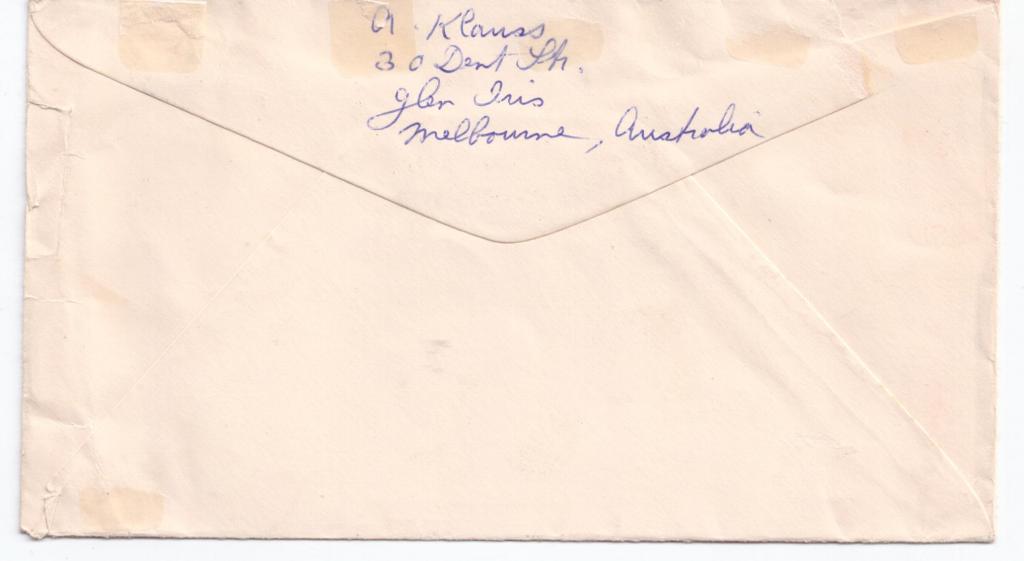 A. Klauss
30 Dent Str.
Glen Iris
Melbourne, Australia